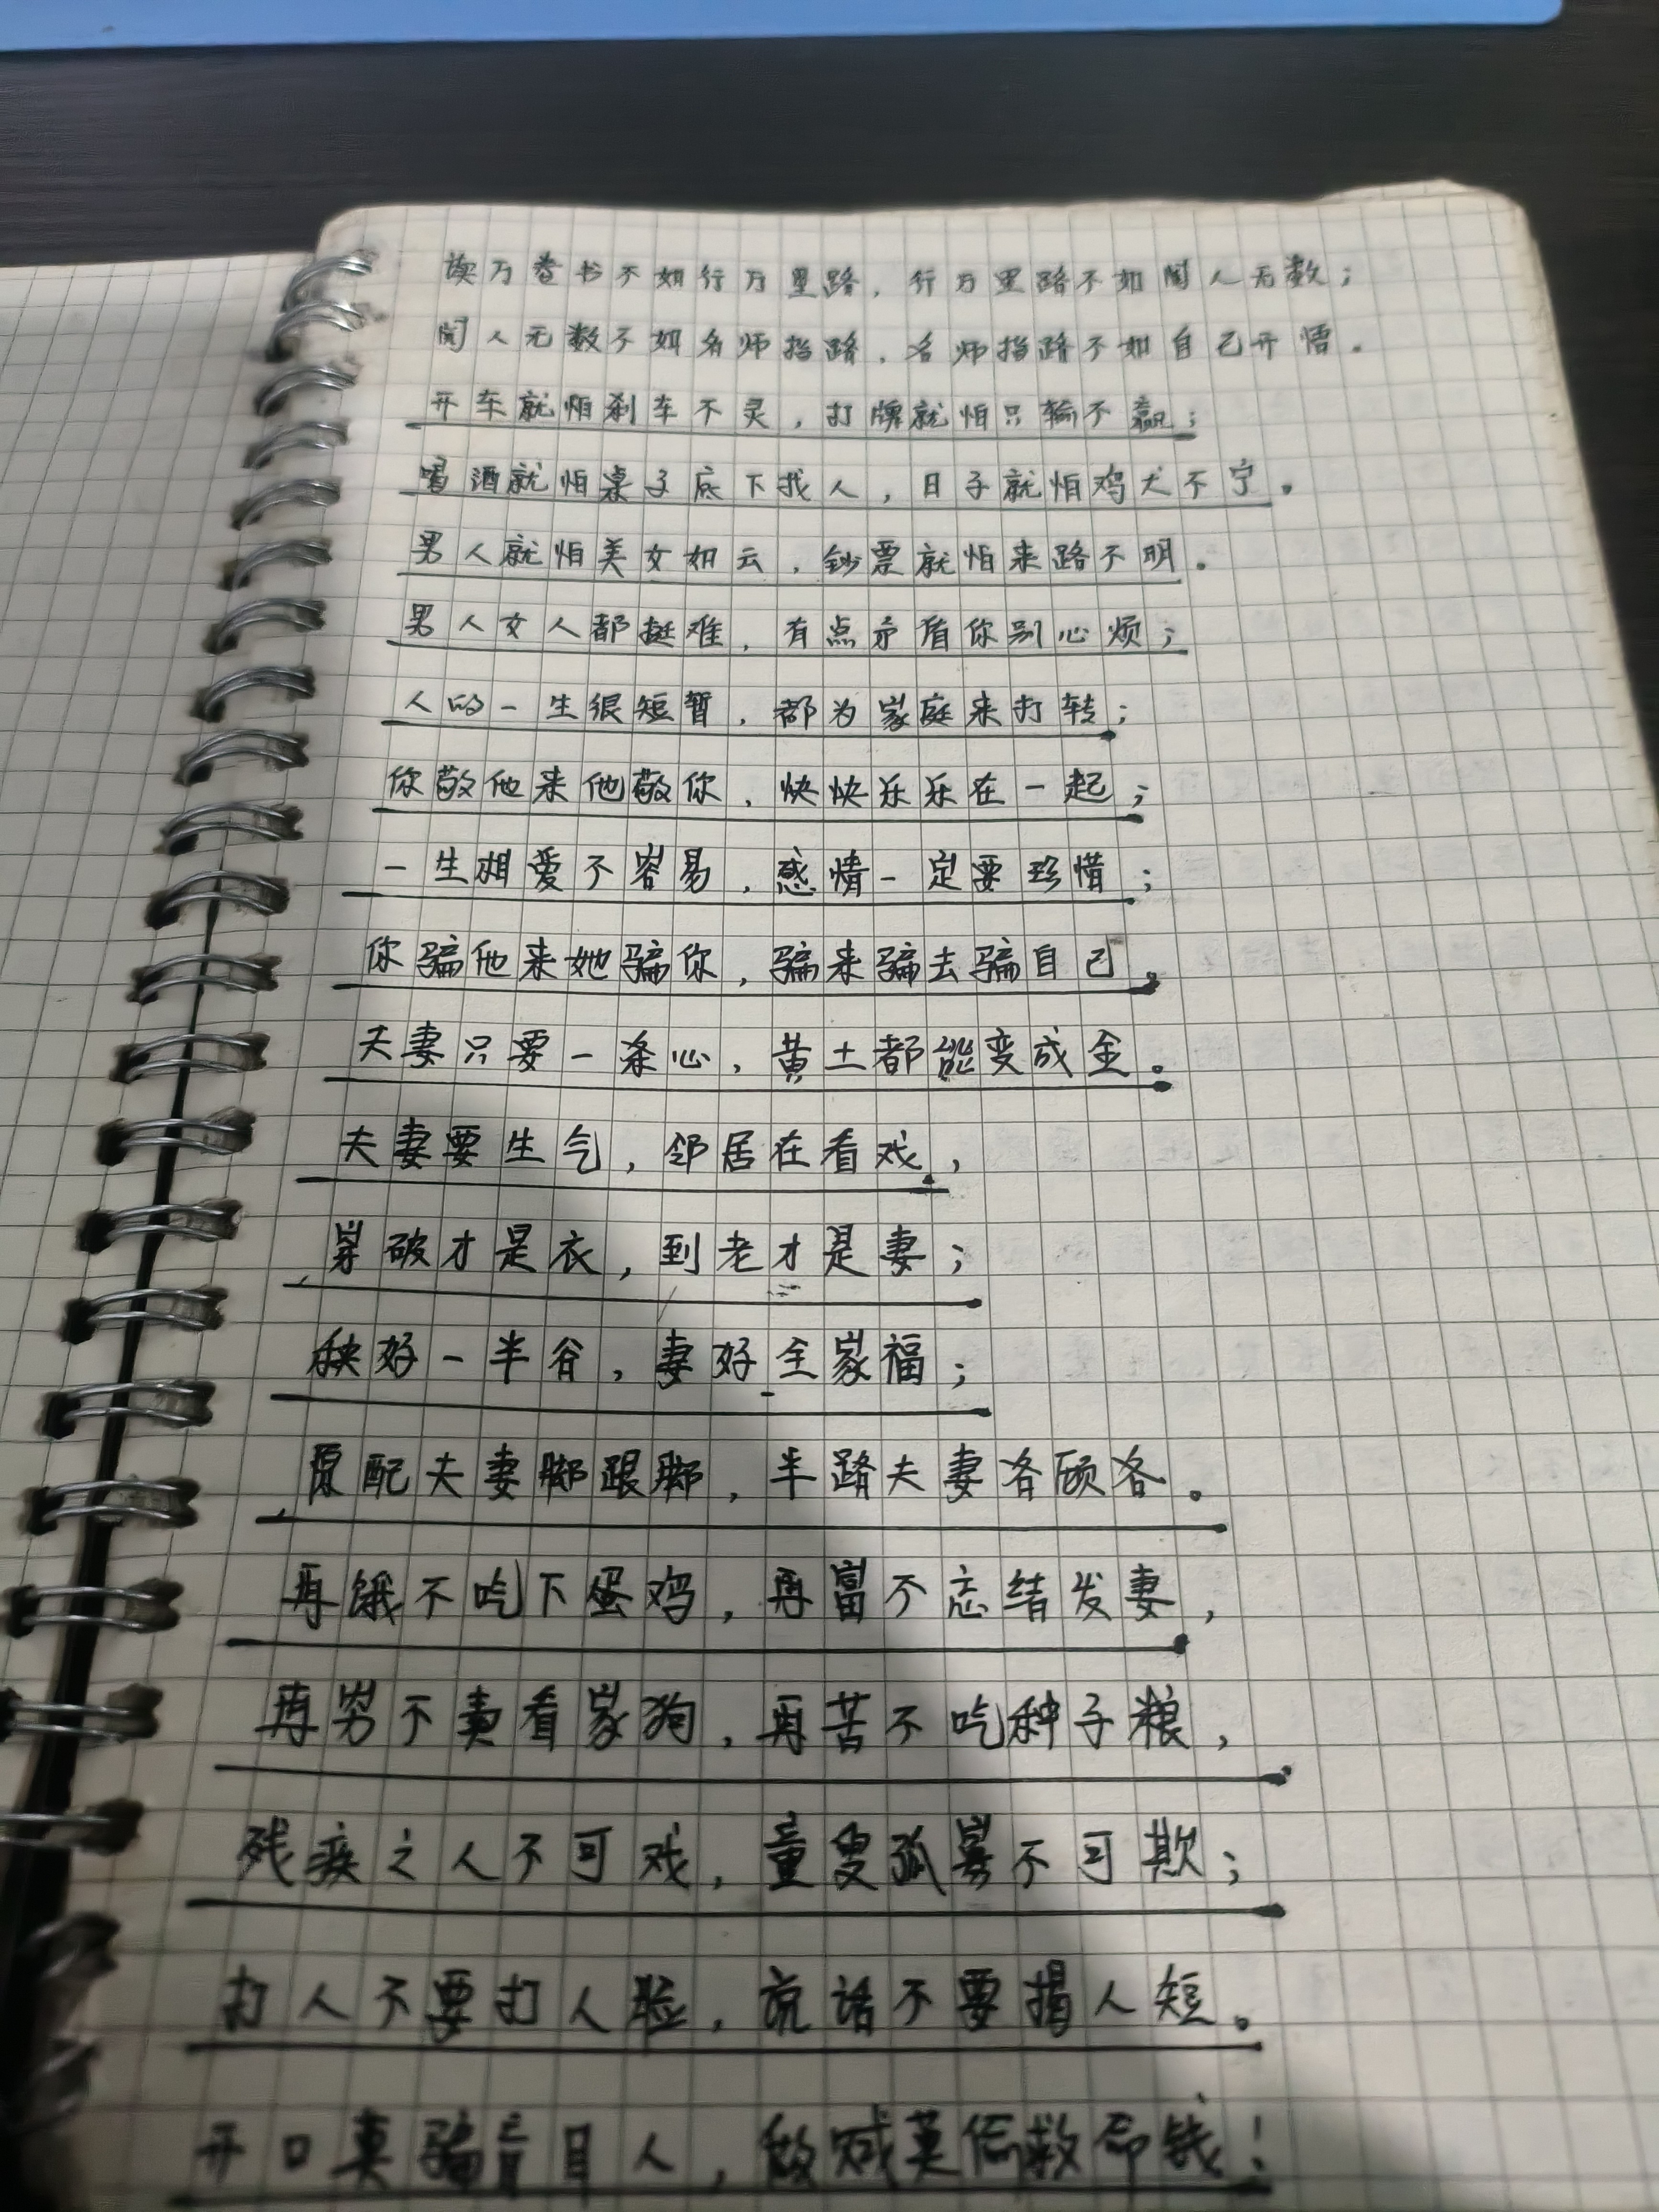 读万卷书不如行万里路，行万里路不如阅人无数；
阅人无数不如名师指路，名师指路不如自己开悟。
开车就怕刹车不灵，打牌就怕只输不赢；
喝酒就怕桌子底下找人，日子就怕鸡犬不宁。
男人就怕美女如云，钞票就怕来路不明。
男人女人都挺难，有点矛盾你别心烦；
人的一生很短暂，都为家庭来打转；
你敬他来他敬你，快快乐乐在一起；
一生相爱不容易，感情一定要珍惜；
你骗他来她骗你，骗来骗去骗自己。
夫妻只要一条心，黄土都能变成金。
夫妻要生气，邻居在看戏，
穿破才是衣，到老才是妻；
秧好一半谷，妻好全家福；
原配夫妻脚跟脚，半路夫妻各顾各。
再饿不吃下蛋鸡，再富不忘结发妻，
再穷不卖看家狗，再苦不吃种子粮，
残疾之人不可戏，童叟孤寡不可欺；
打人不要打人脸，说话不要揭人短。
开口莫骗盲目人，做贼莫偷救命钱！